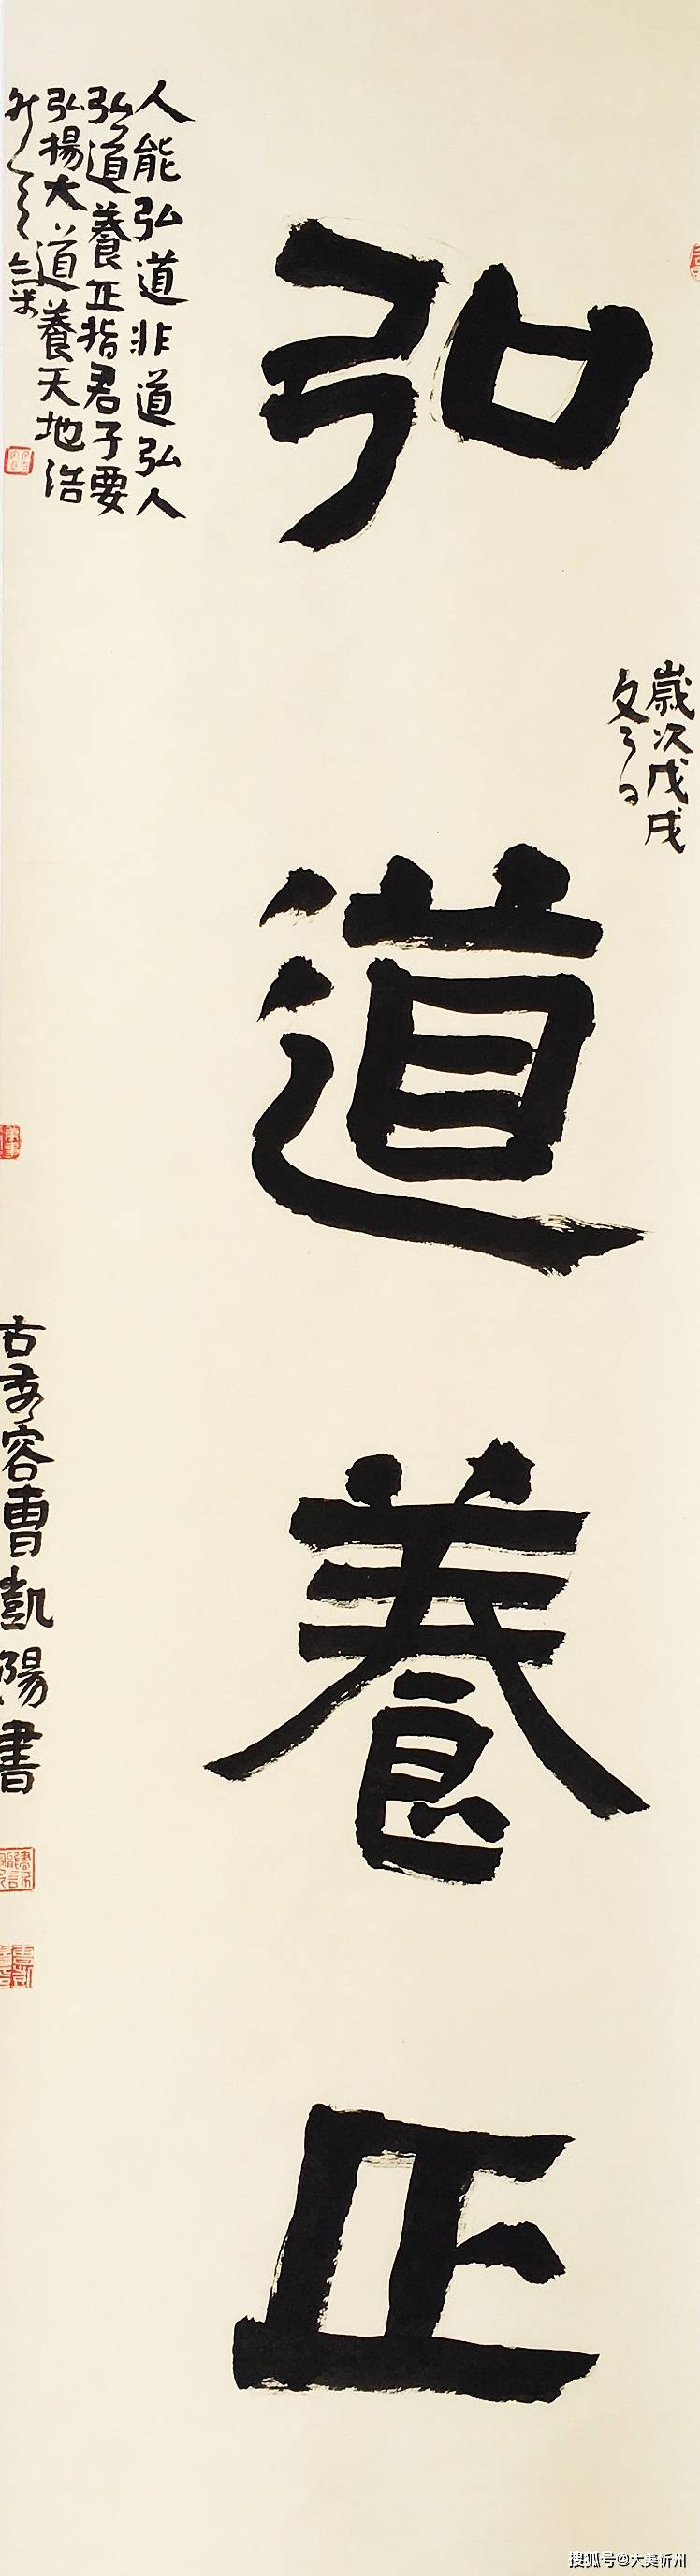 弘道養正
歲次戊戌
夏日
人能弘道非道弘人
弘道養正指君子要
弘揚大道養天地浩
然正氣
古秀容曹凱陽書
搜狐号@大美忻州